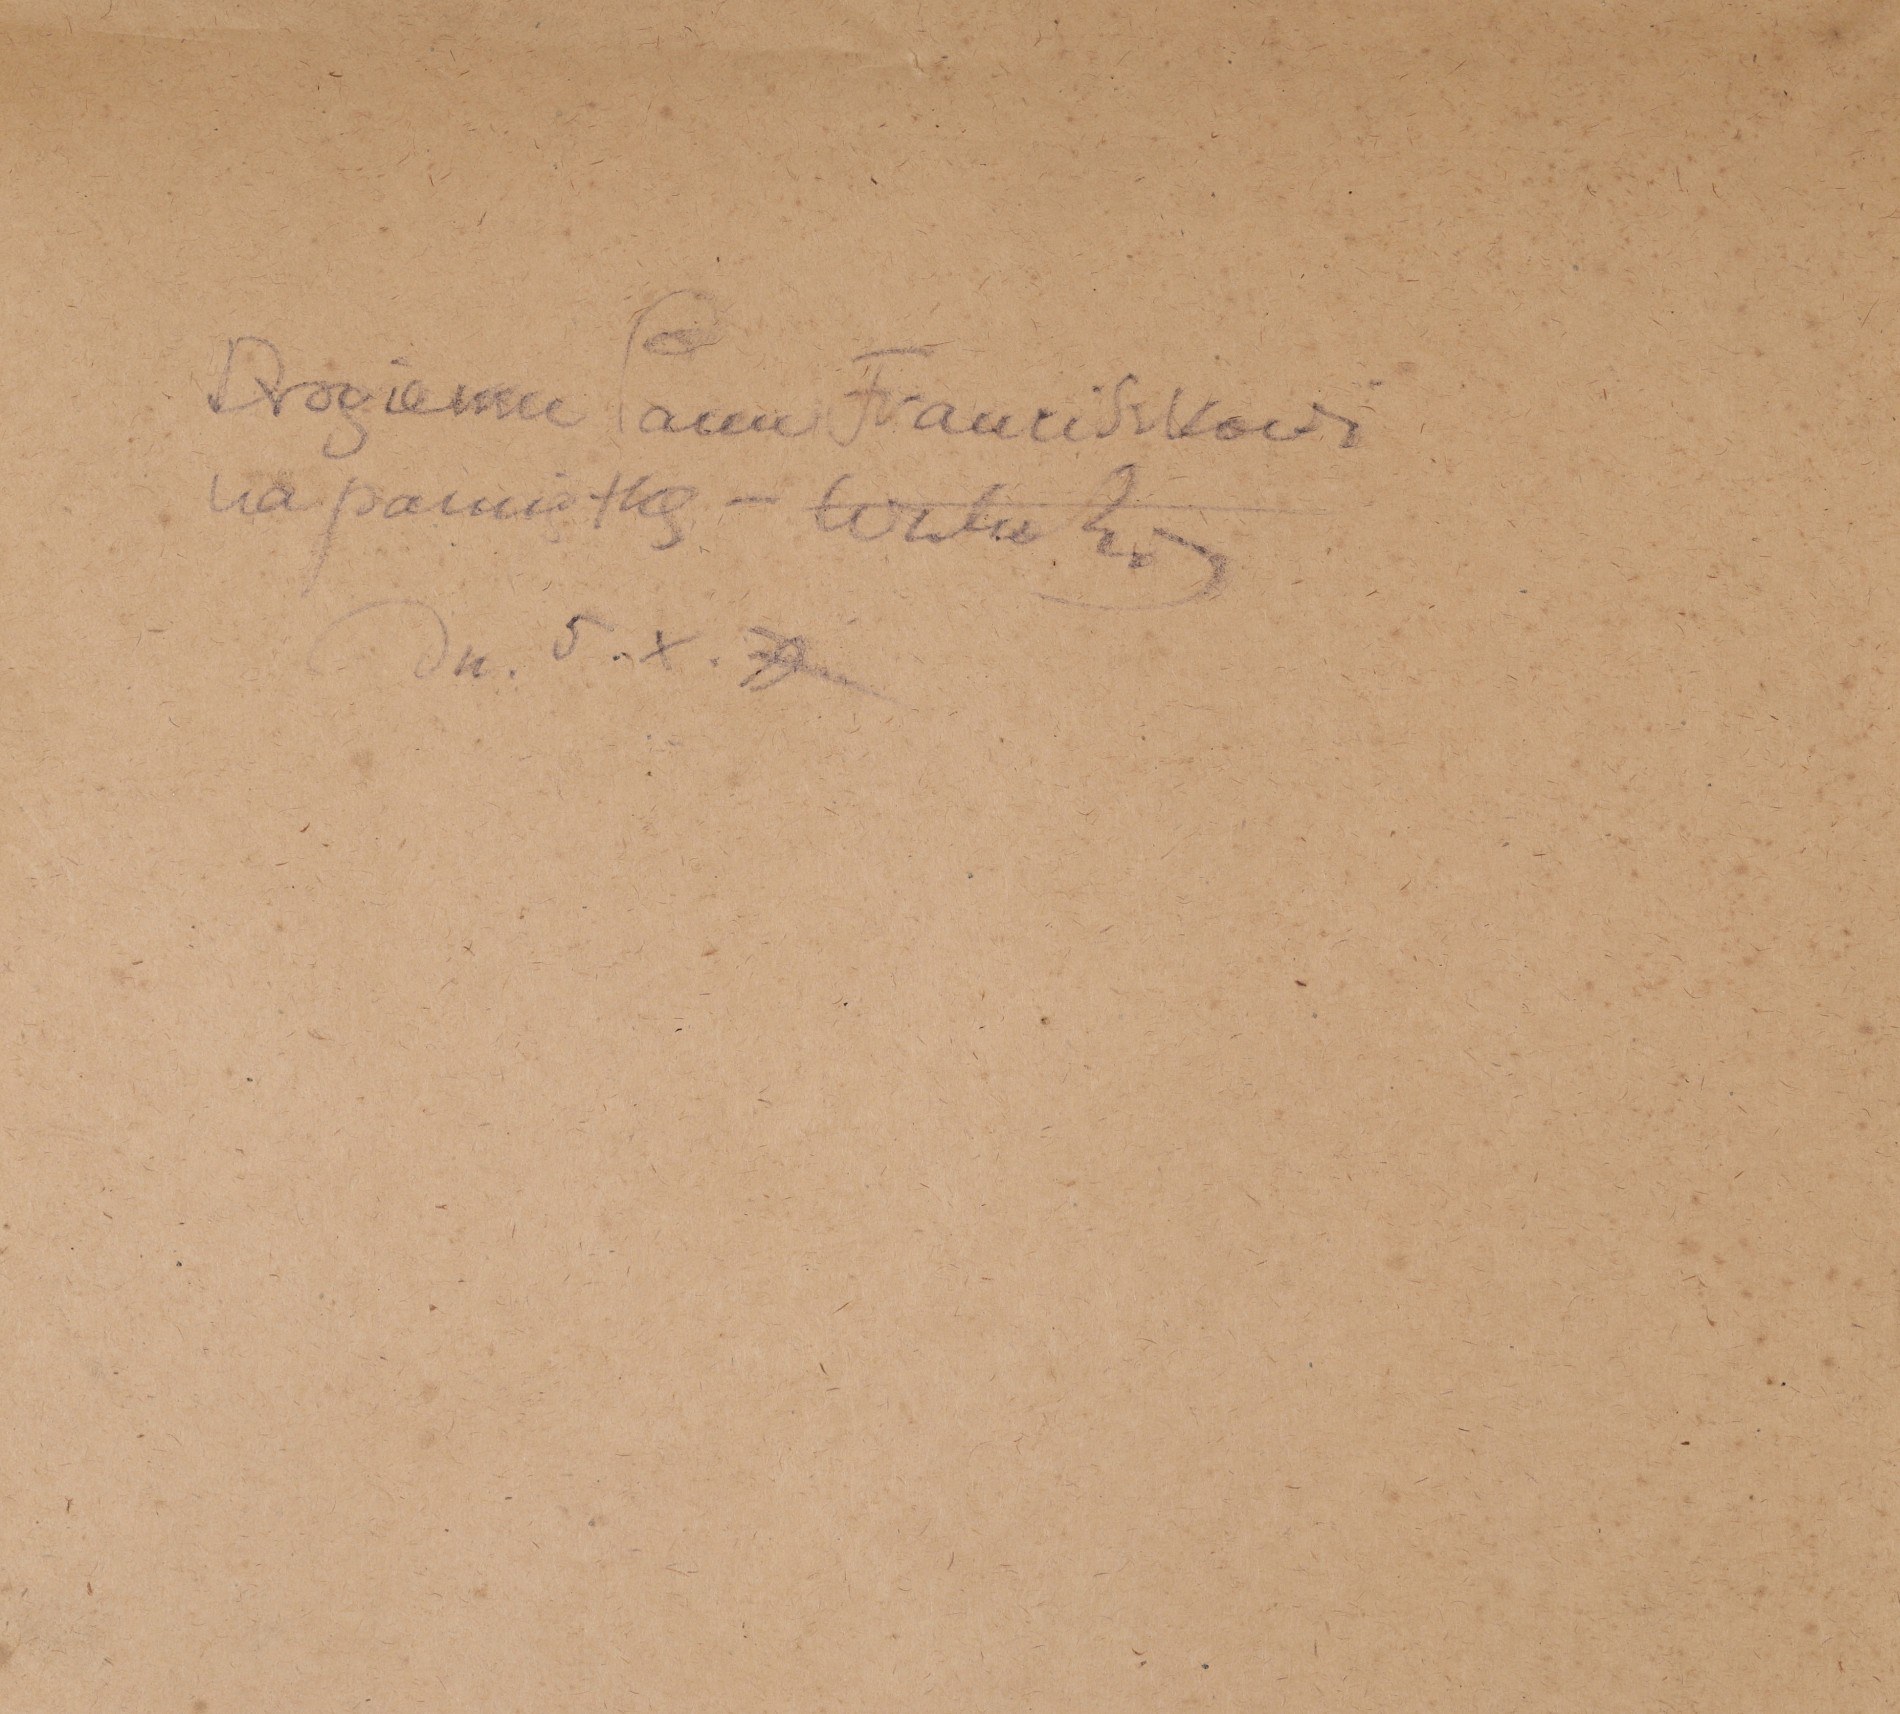 Drogiemu Panu Franciszkowi
na pamiątkę –
Dn. 5. X.